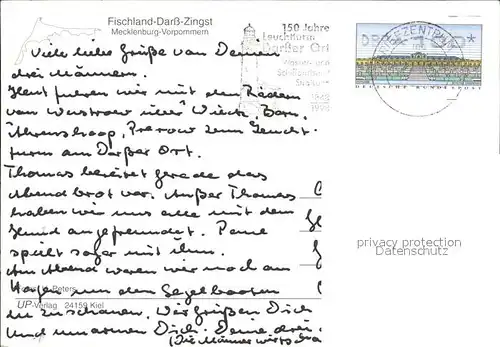 Fischland-Darß-Zingst
Mecklenburg-Vorpommern
150 Jahre
Leuchtturm
Darßer Ort
1848
1998
BRIEFZENTRUM
DEUTSCHE BUNDESPOST
Viele liebe Grüße von Deinen
drei Männern.
Heut fuhren wir mit den Rädern
von Wustrow über Wieck, Born,
Ahrenshoop, Prerow zum Leucht-
turm am Darßer Ort.
Thomas bereitet gerade das
Abendbrot vor. Außer Thomas
haben wir uns alle mit dem
Hund angefreundet. Paule
spielt sogar mit ihm.
Am Abend waren wir noch am
Hafen um den Segelbooten
zu zuschauen. Wir grüßen Dich
und umarmen Dich. Deine drei
(Die Männer
Peters
UP-Verlag 24159 Kiel
privacy protection
Datenschutz